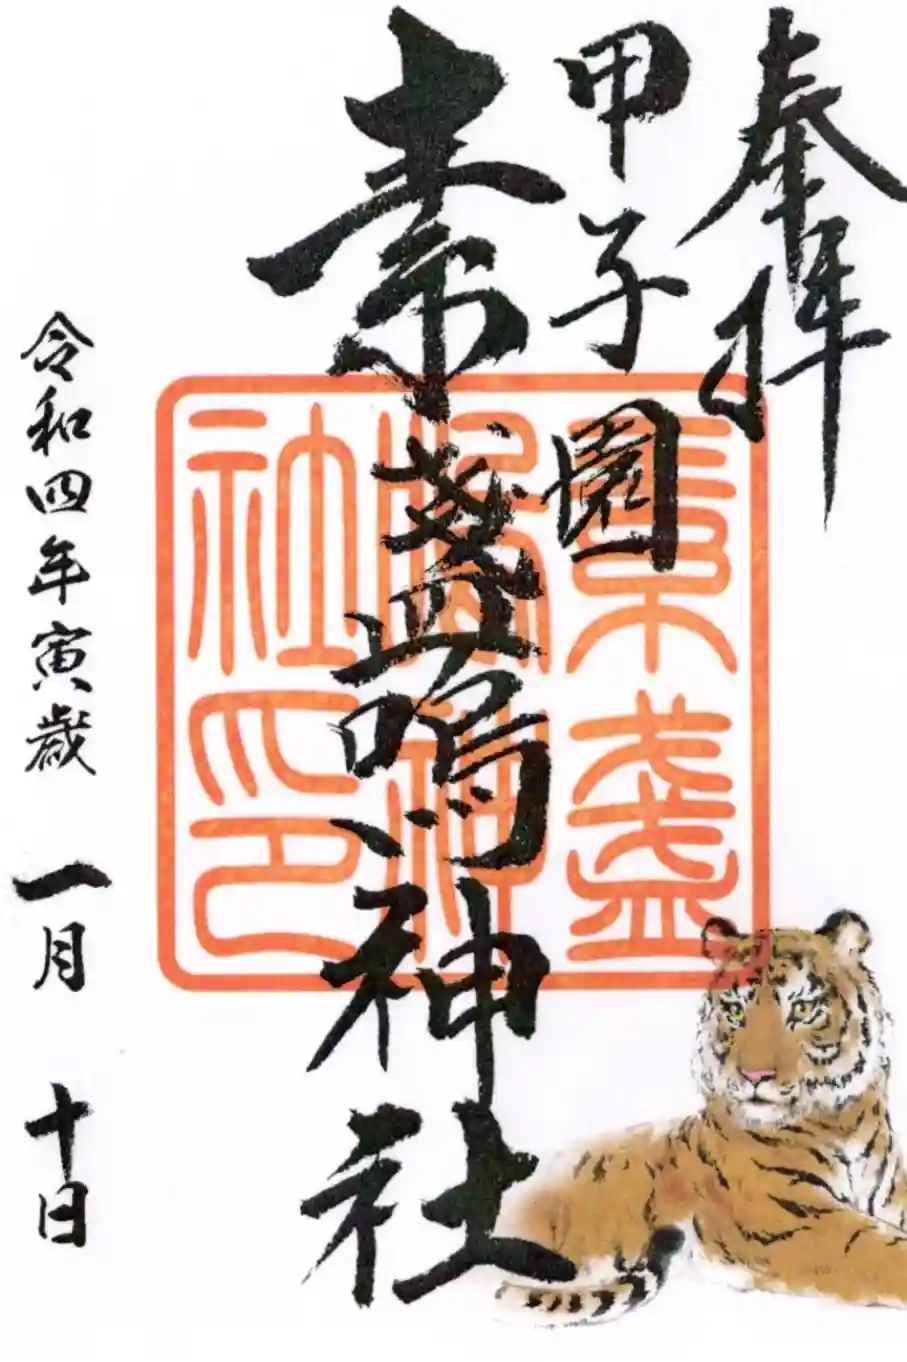 奉拝
甲子園
素盞嗚神社
素盞
嗚神
社印
令和四年寅歳 一月 十日